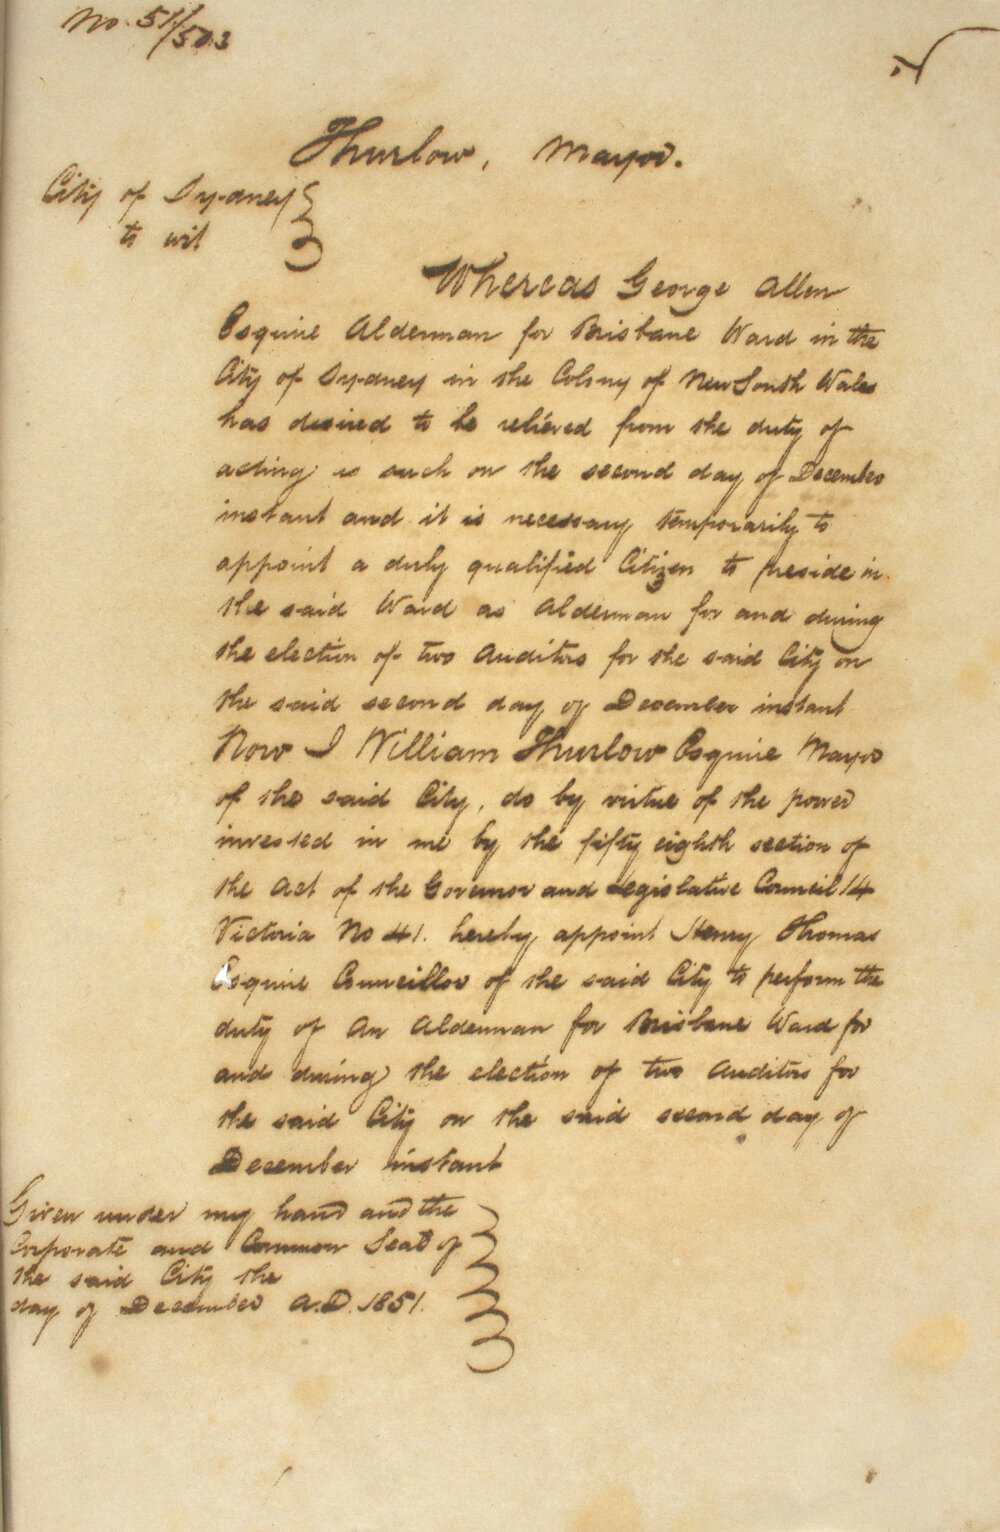 No. 51/503
Thurlow, Mayor.
City of Sydney
to wit
Whereas George Allen
Esquire Alderman for Brisbane Ward in the
City of Sydney in the Colony of New South Wales
has desired to be relieved from the duty of
acting is such on the second day of December
instant and it is necessary temporarily to
appoint a duly qualified Citizen to preside in
the said Ward as Alderman for and during
the election of two Auditors for the said City on
the said second day of December instant
Now I William Thurlow Esquire Mayor
of the said City, do by virtue of the power
invested in me by the fifty eighth section of
the Act of the Governor and Legislative Council 14
Victoria No 41. hereby appoint Henry Thomas
Esquire Councillor of the said City to perform the
duty of An Alderman for Brisbane Ward for
and during the election of two Auditors for
the said City on the said second day of
December instant
Given under my hand and the
Corporate and Common Seal of
the said City the
day of December A.D. 1851.